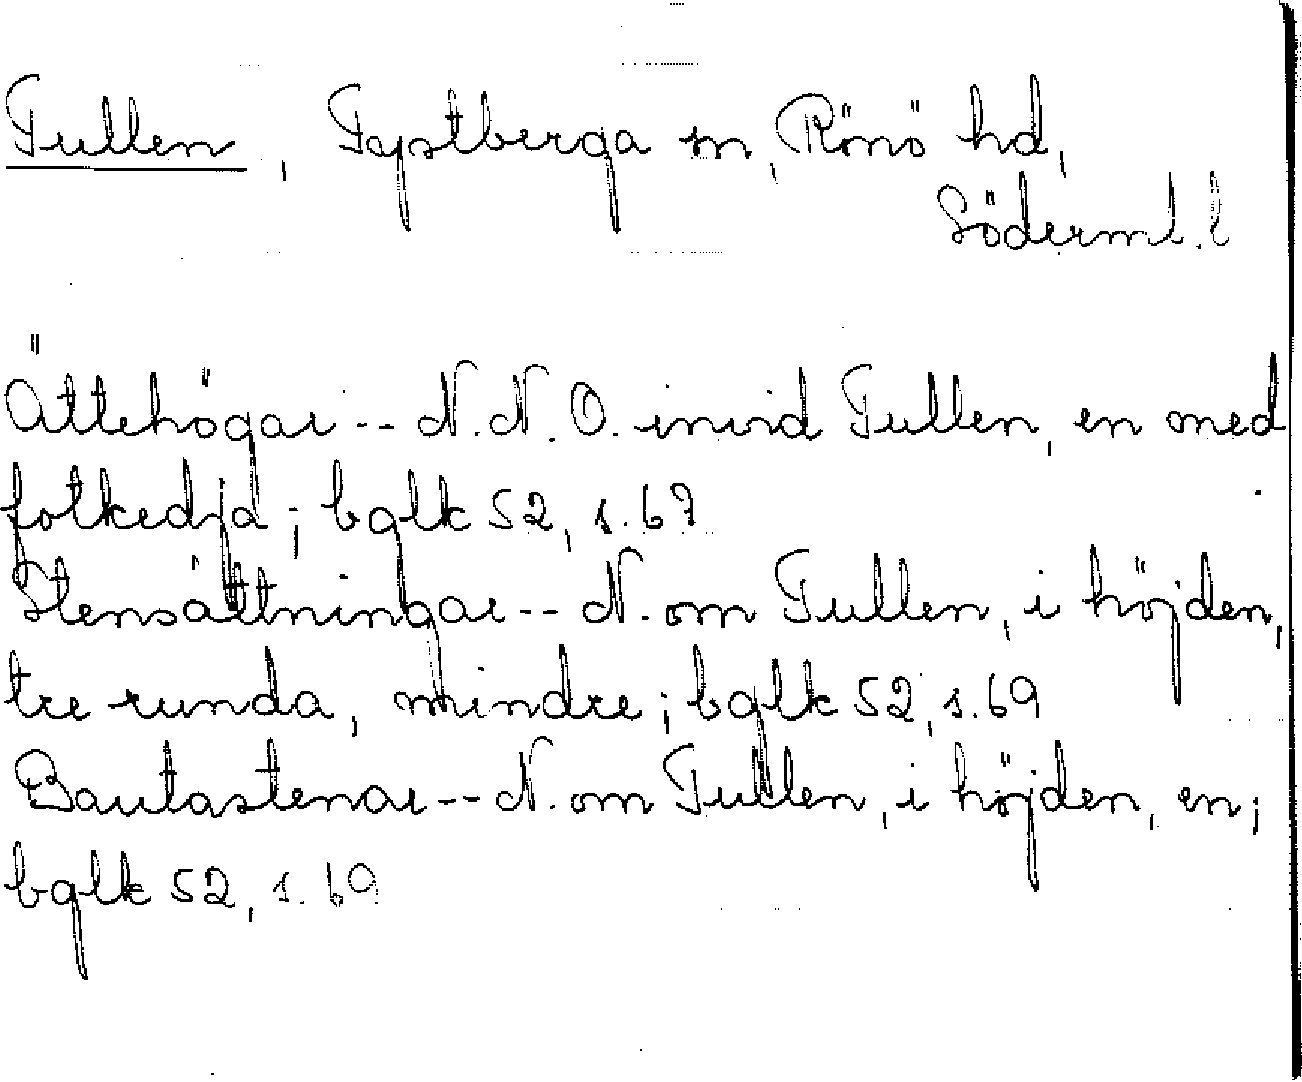 Tullen, Tystberga sn, Rönö hd,
Söderml. l
Ättehögar -- N.N.O. invid Tullen, en med
fotkedja; bglk 52, s. 67
Stensättningar -- N. om Tullen, i höjden,
tre runda, mindre; bglk 52, s. 69
Bautastenar -- N. om Tullen, i höjden, en;
bglk 52, s. 69